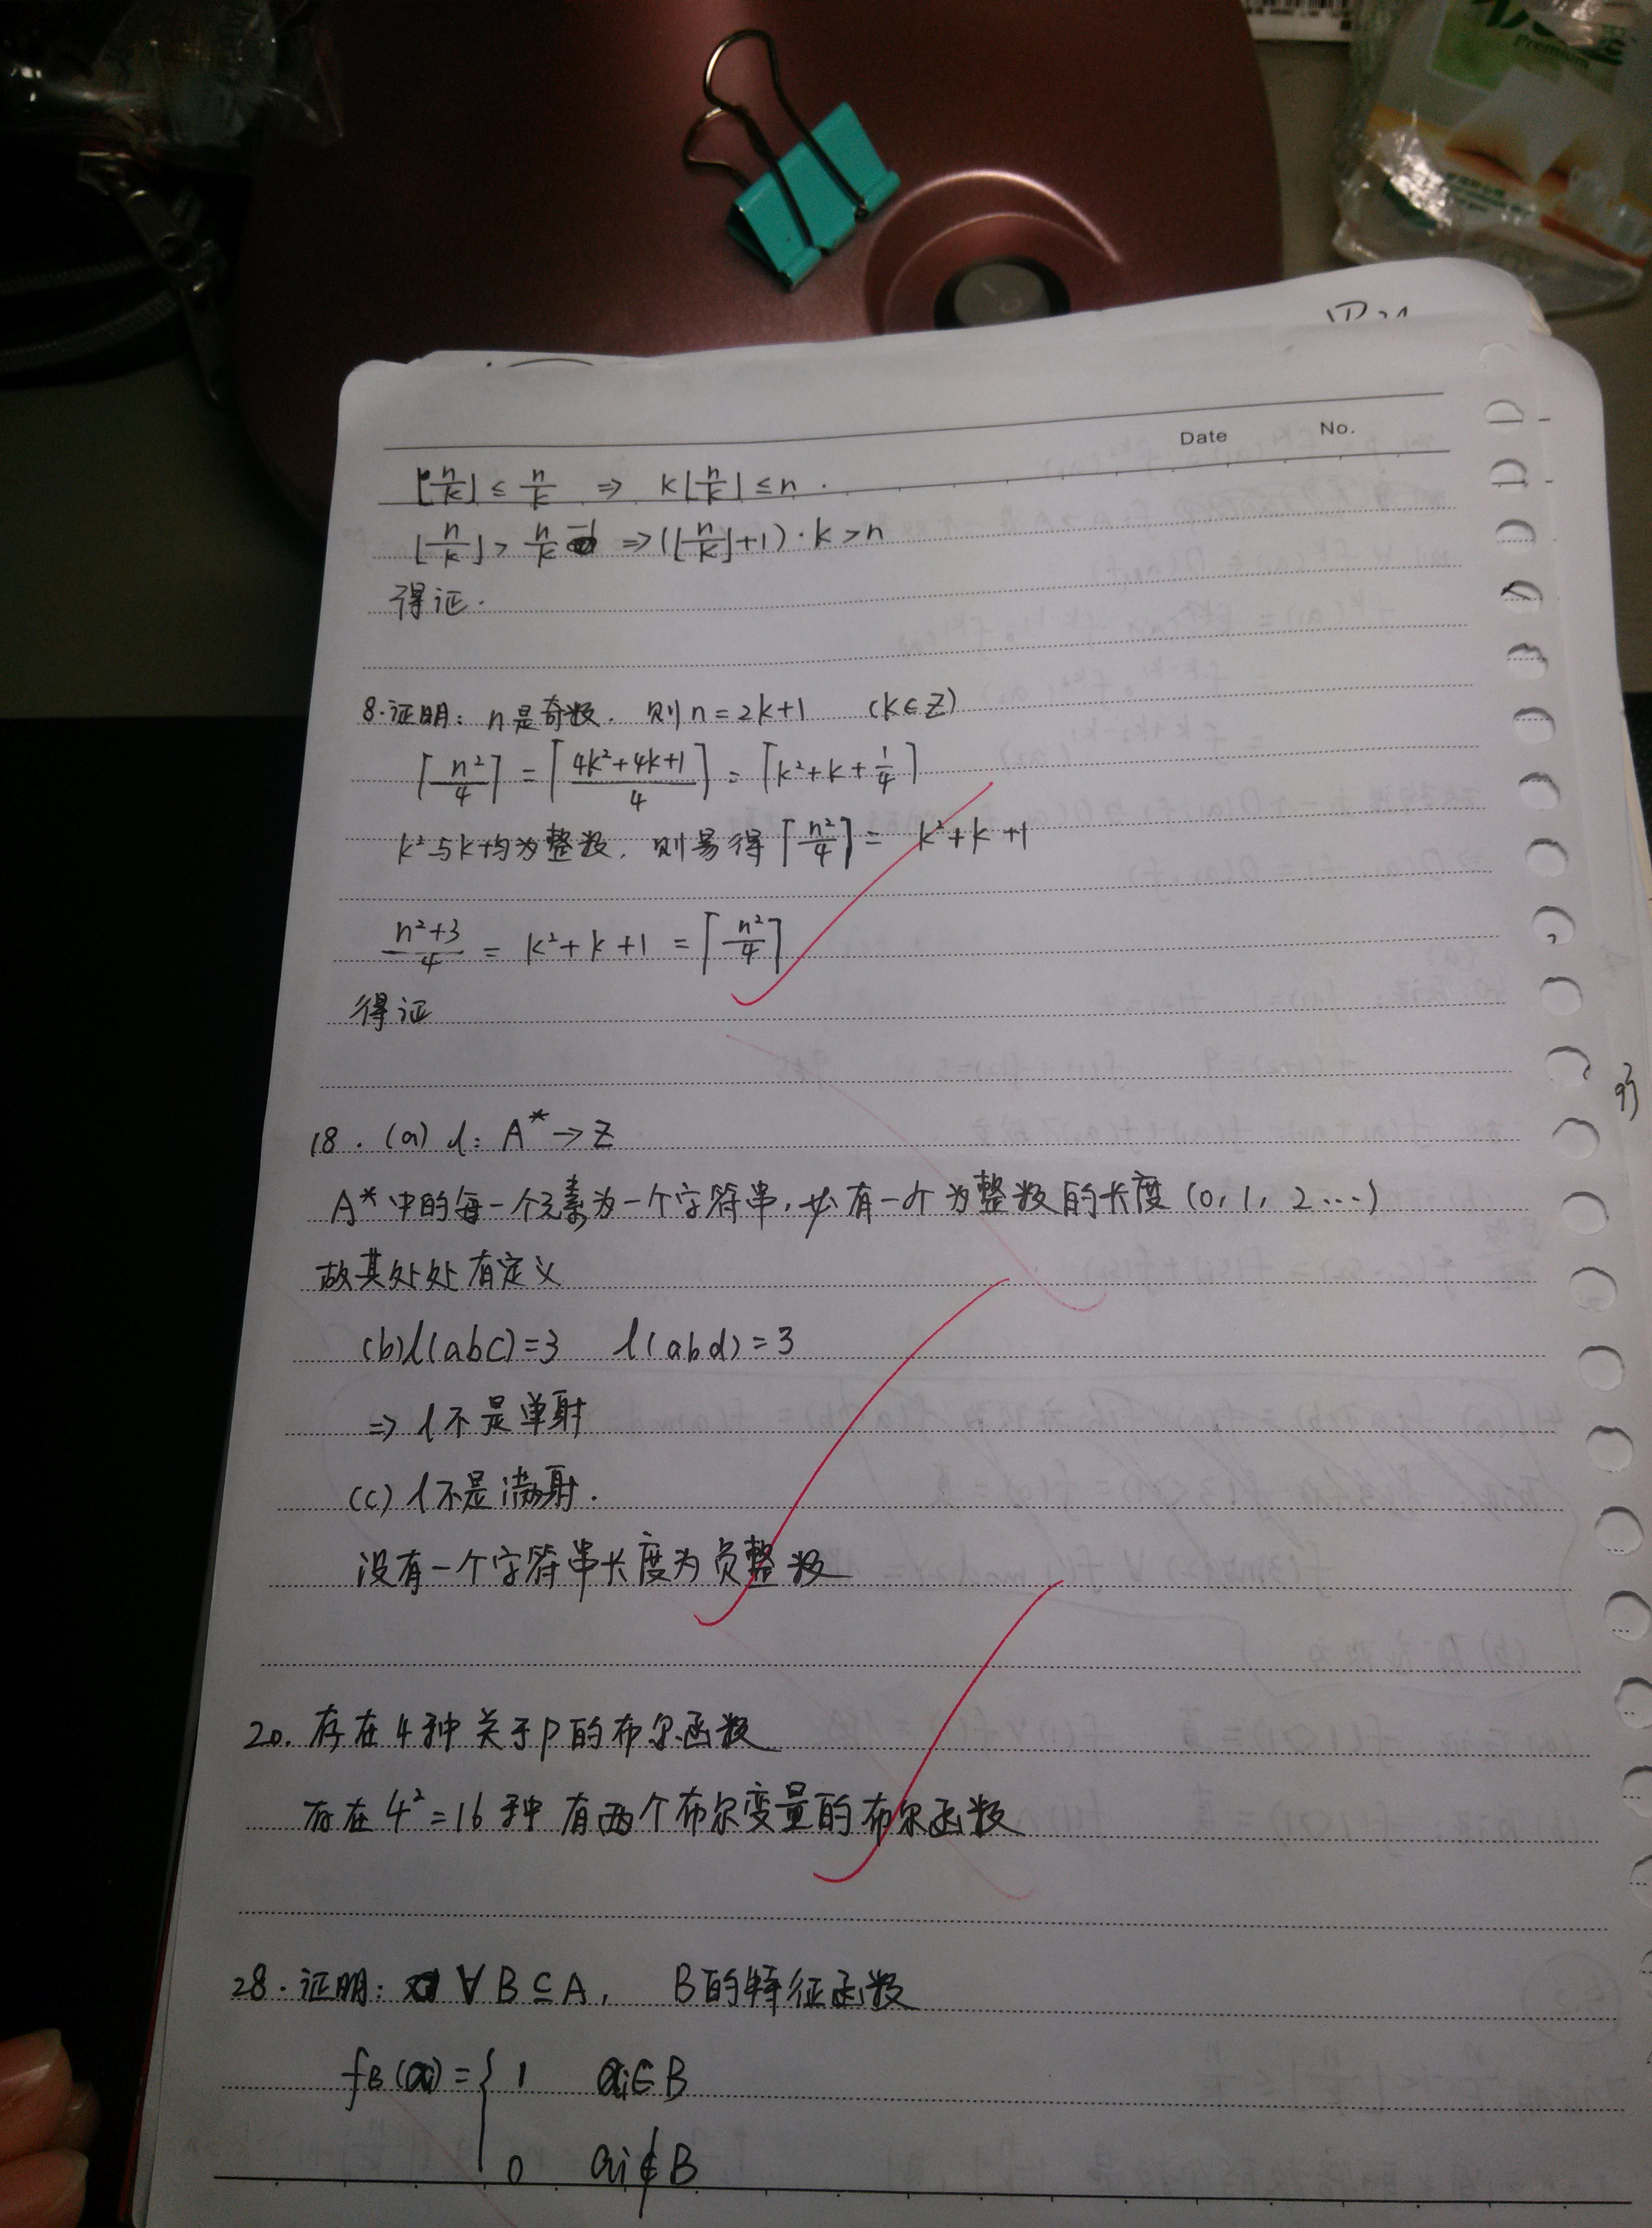 Premium
Date No.
⌊n/k⌋ ≤ n/k ⇒ k⌊n/k⌋ ≤ n.
⌊n/k⌋ > n/k -1 ⇒ (⌊n/k⌋+1)·k > n
得证.
8.证明: n是奇数. 则n=2k+1 (k∈Z)
⌈n²/4⌉ = ⌈(4k²+4k+1)/4⌉ = ⌈k²+k+1/4⌉
k²与k均为整数, 则易得⌈n²/4⌉ = k²+k+1
(n²+3)/4 = k²+k+1 = ⌈n²/4⌉
得证
18. (a) l: A*→Z
A*中的每一个元素为一个字符串,必有一个为整数的长度(0,1,2…)
故其处处有定义
(b) l(abc)=3 l(abd)=3
⇒ l不是单射
(c) l不是满射.
没有一个字符串长度为负整数
20. 存在4种关于p的布尔函数
存在4²=16种有两个布尔变量的布尔函数
28.证明: ∀B⊆A, B的特征函数
fB(ai)={1 ai∈B
0 ai∉B